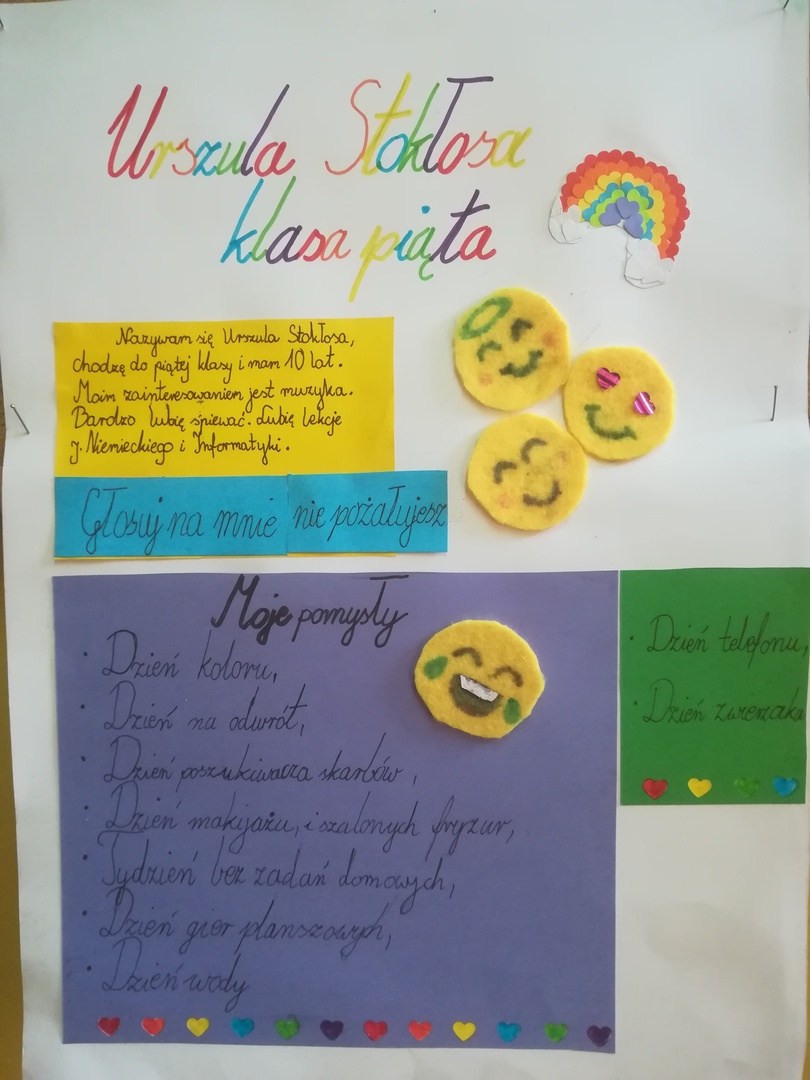 Urszula Stokłosa
klasa piąta
Nazywam się Urszula Stokłosa,
chodzę do piątej klasy i mam 10 lat.
Moim zainteresowaniem jest muzyka.
Bardzo lubię śpiewać. Lubię lekcje
j. Niemieckiego i Informatyki.
Głosuj na mnie nie pożałujesz
Moje pomysły
· Dzień koloru,
· Dzień na odwrót,
· Dzień poszukiwacza skarbów,
· Dzień makijażu, i szalonych fryzur,
· Tydzień bez zadań domowych,
· Dzień gier planszowych,
· Dzień wody
· Dzień telefonu,
· Dzień zwierzaka